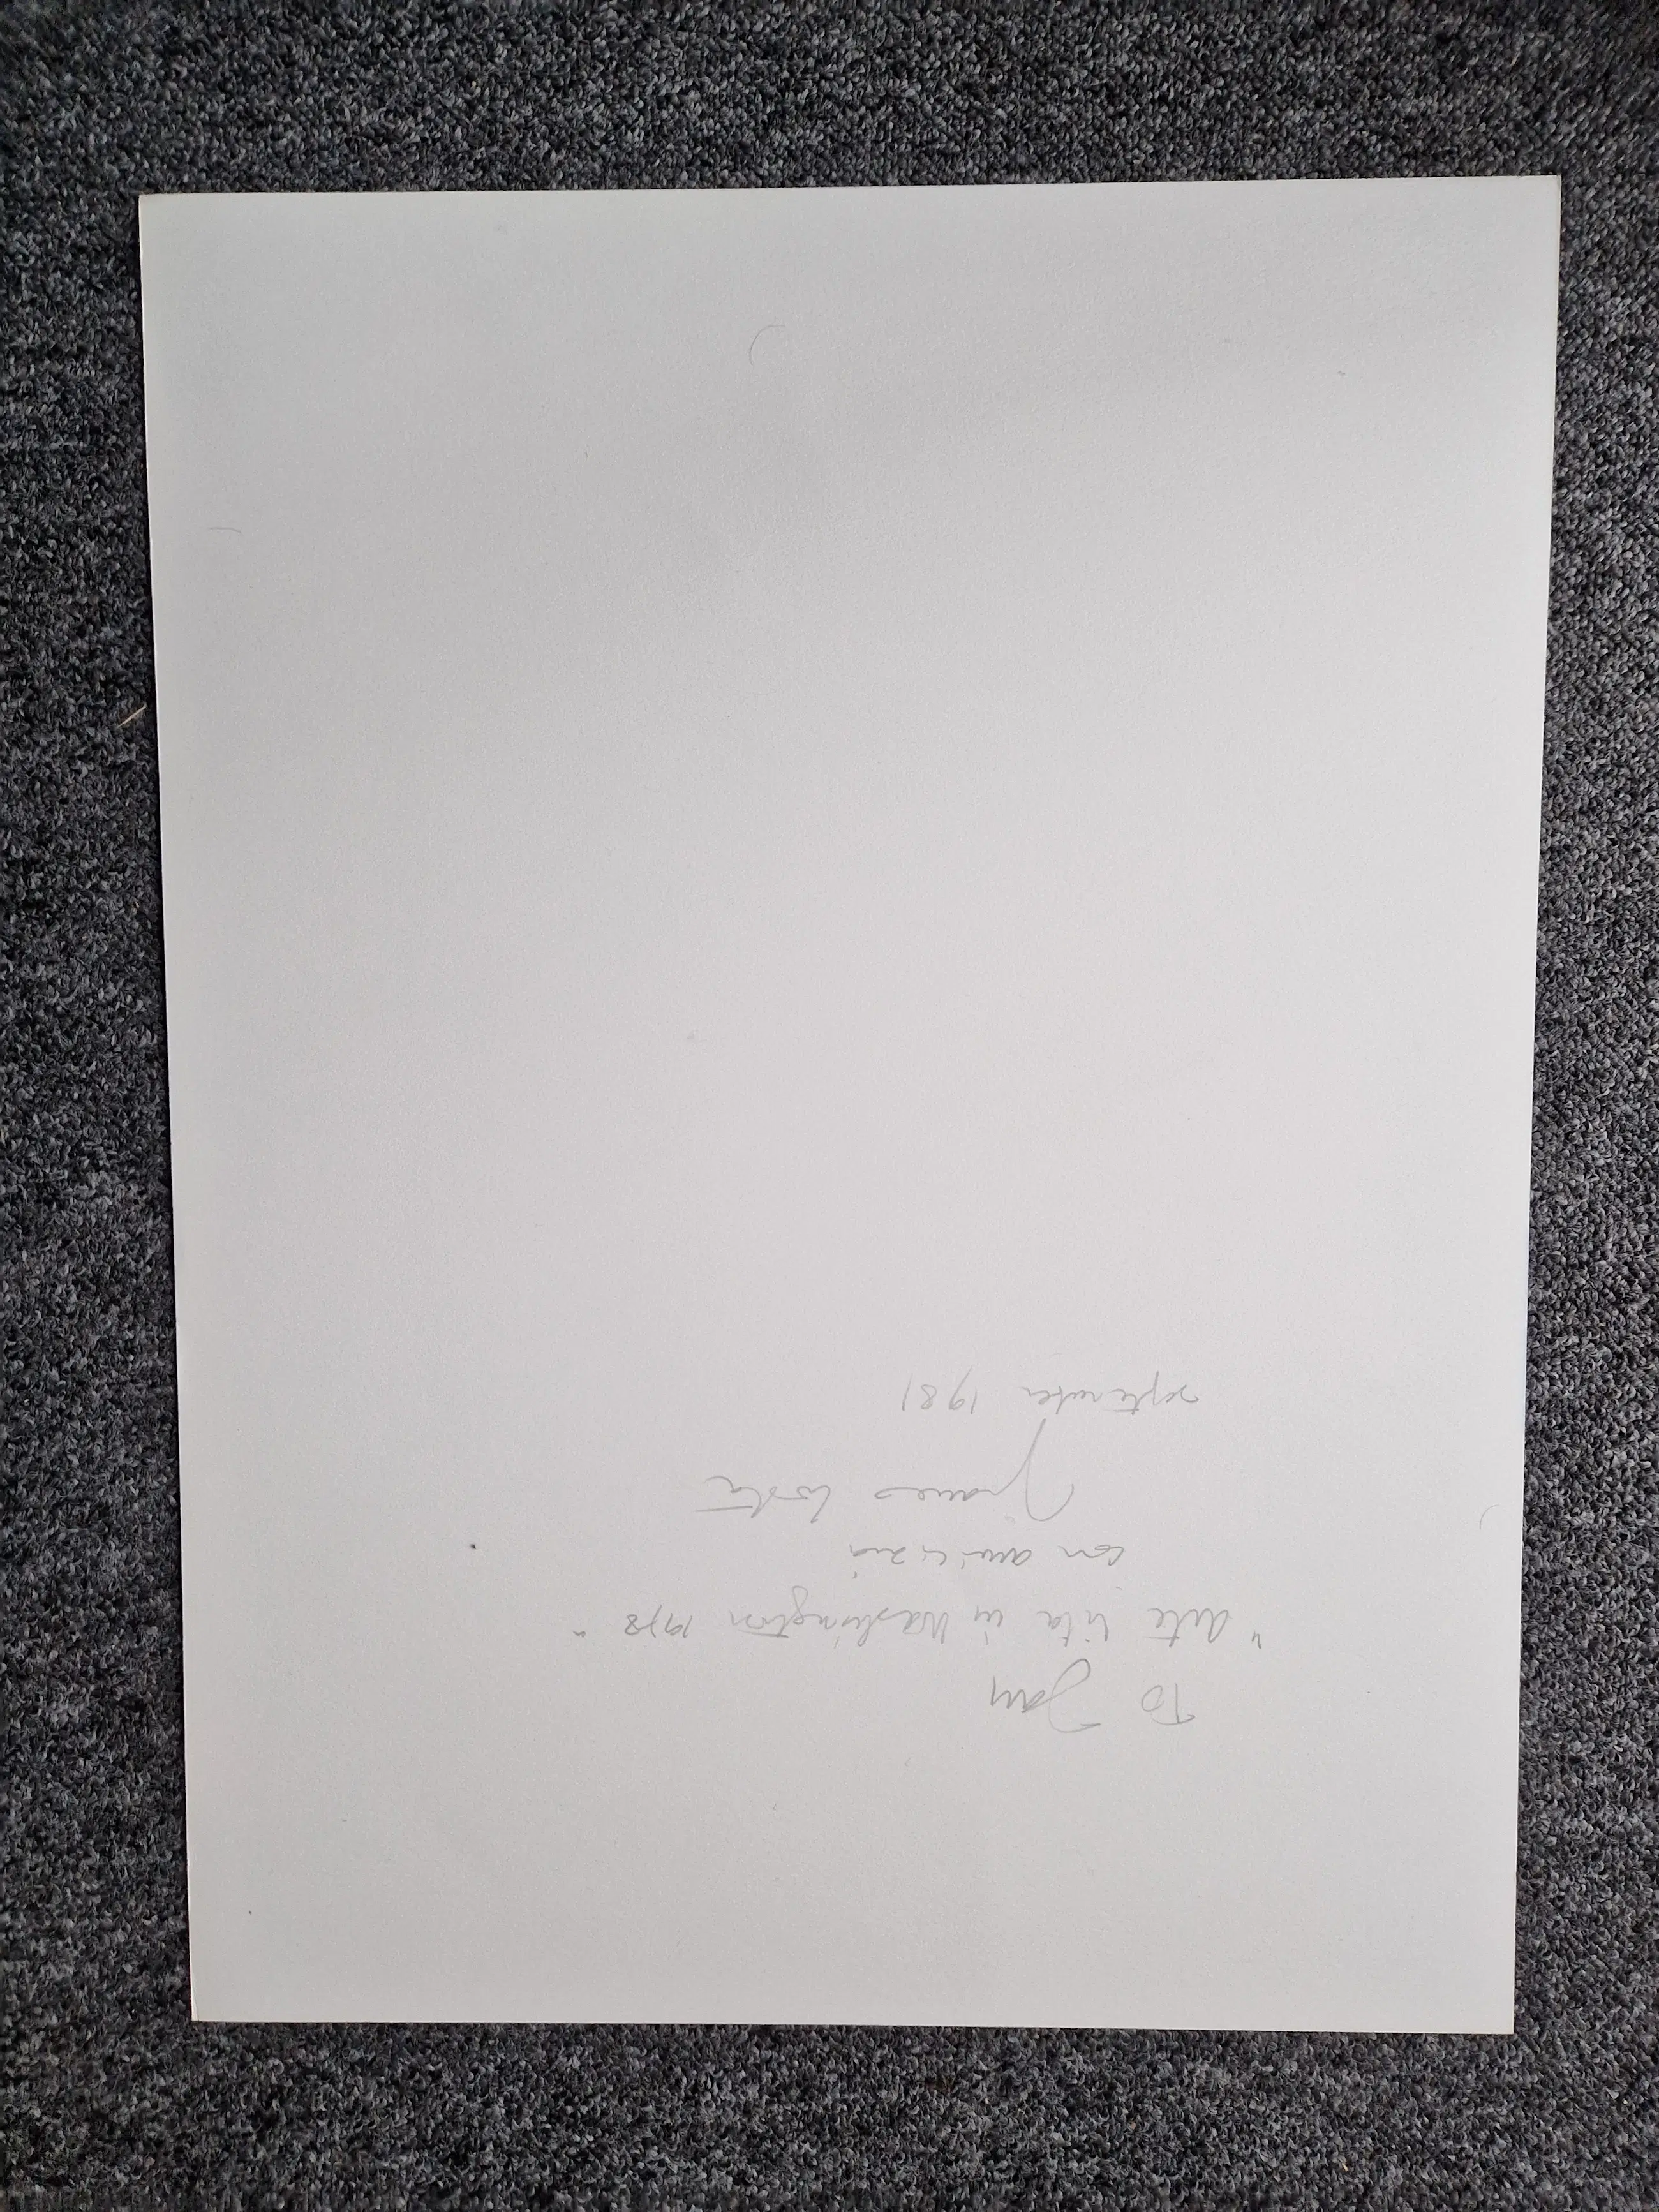 To Jan
"Arte Vita in Washington 1978"
con amicizia
Franco
september 1981